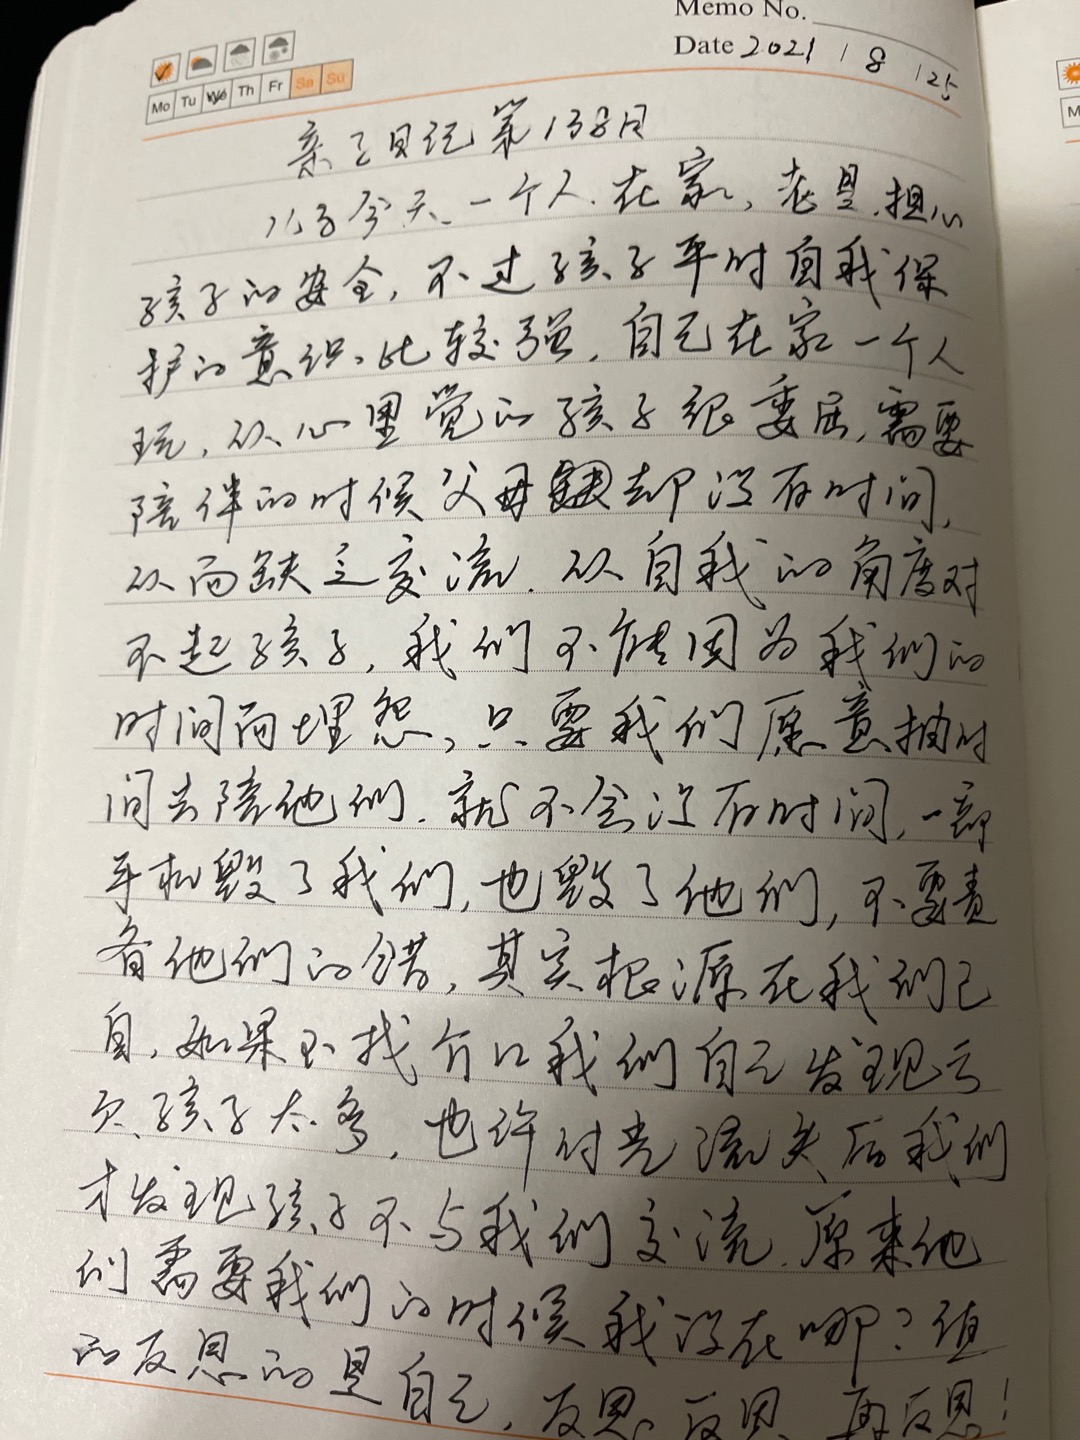 Memo No.
Date 2021 / 8 / 25
Mo Tu We Th Fr Sa Su
亲子日记第138日
儿子今天一个人在家,老是担心
孩子的安全,不过孩子平时自我保
护的意识比较强,自己在家一个人
玩,从心里觉的孩子很委屈,需要
陪伴的时候父母却没有时间,
从而缺乏交流.从自我的角度对
不起孩子,我们不能因为我们的
时间而埋怨,只要我们愿意抽时
间去陪他们.就不会没有时间,一部
手机毁了我们,也毁了他们,不要责
备他们的错,其实根源在我们己
自,如果不找借口我们自己发现亏
欠孩子太多,也许时光流失后我们
才发现孩子不与我们交流.原来他
们需要我们的时候我没在哪?值
的反思的是自己,反思 反思 再反思!
M